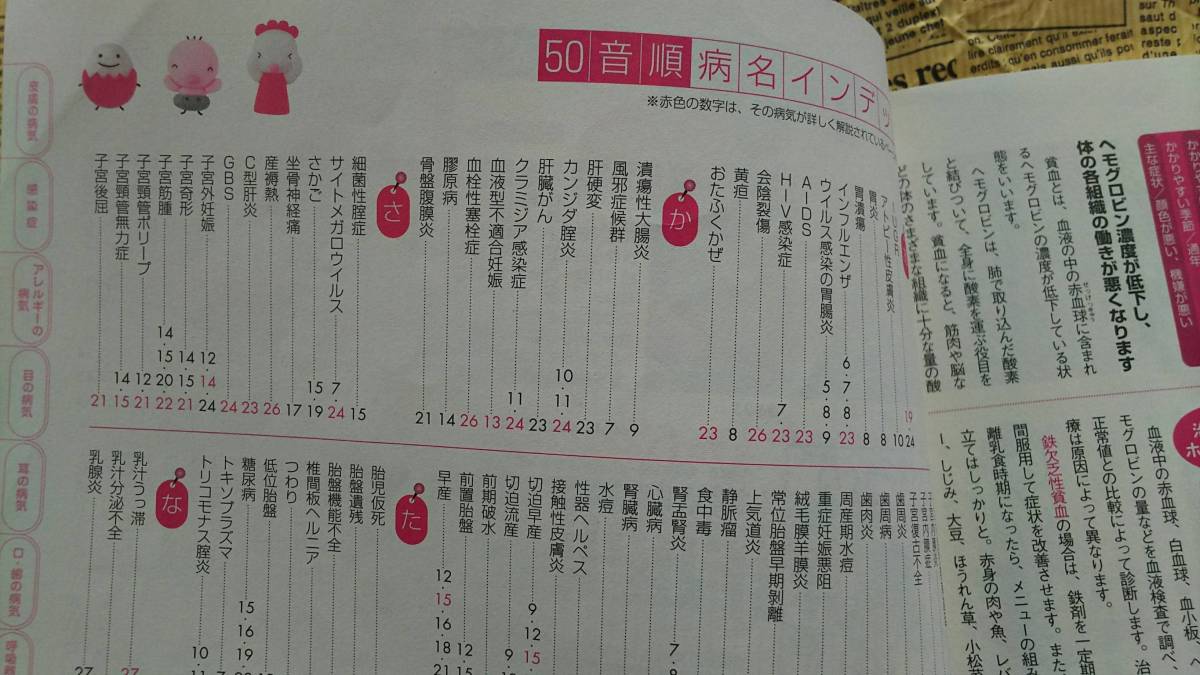 50音順病名インデッ
※赤色の数字は、その病気が詳しく解説されている
アトピー性皮膚炎 10
胃炎 8
胃潰瘍 8
インフルエンザ 6・7・8・23
ウイルス感染の胃腸炎 5・8・9
AIDS 23
HIV感染症 7・23
会陰裂傷 26
黄疸 8
おたふくかぜ 23
か
潰瘍性大腸炎 9
風邪症候群 7
肝硬変 23
カンジダ腟炎 10・11・24
肝臓がん 23
クラミジア感染症 11・24
血液型不適合妊娠 13
血栓性塞栓症 26
膠原病 14
骨盤腹膜炎 21
さ
細菌性腟症 15
サイトメガロウイルス 7・24
さかご 15・19
坐骨神経痛 17
産褥熱 26
C型肝炎 23
GBS 24
子宮外妊娠 12・14・24
子宮奇形 14・15・21
子宮筋腫 14・15・20・22
子宮頸管ポリープ 12・21
子宮頸管無力症 14・15
子宮後屈 21
子宮復古不全
歯周炎
歯周病
歯肉炎
周産期水痘
重症妊娠悪阻
絨毛膜羊膜炎
常位胎盤早期剥離
上気道炎
静脈瘤
食中毒
腎盂腎炎 7・8
心臓病
腎臓病
水痘
性器ヘルペス
接触性皮膚炎
切迫早産 9・12・15
切迫流産 9
前期破水
前置胎盤 12・15
早産 12・15・16・18・21
た
胎児仮死
胎盤遺残
胎盤機能不全
椎間板ヘルニア
つわり
低位胎盤
糖尿病 15・16・19
トキソプラズマ
トリコモナス腟炎 10・11
な
乳汁うっ滞 27
乳汁分泌不全
乳腺炎 27
皮膚の病気
感染症
アレルギーの病気
目の病気
耳の病気
口・歯の病気
呼吸器
かかりやすい季節/通年
主な症状/顔色が悪い、機嫌が悪い
ヘモグロビン濃度が低下し、
体の各組織の働きが悪くなります
貧血とは、血液の中の赤血球に含まれ
るヘモグロビンの濃度が低下している状
態をいいます。
ヘモグロビンは、肺で取り込んだ酸素
と結びついて、全身に酸素を運ぶ役目を
しています。貧血になると、筋肉や脳な
どの体のさまざまな組織に十分な量の酸
血液中の赤血球、白血球、血小板、ヘ
モグロビンの量などを血液検査で調べ、
正常値との比較によって診断します。治
療は原因によって異なります。
鉄欠乏性貧血の場合は、鉄剤を一定期
間服用して症状を改善させます。また、
離乳食時期になったら、メニューの組み
立てはしっかりと。赤身の肉や魚、レバ
ー、しじみ、大豆、ほうれん草、小松菜